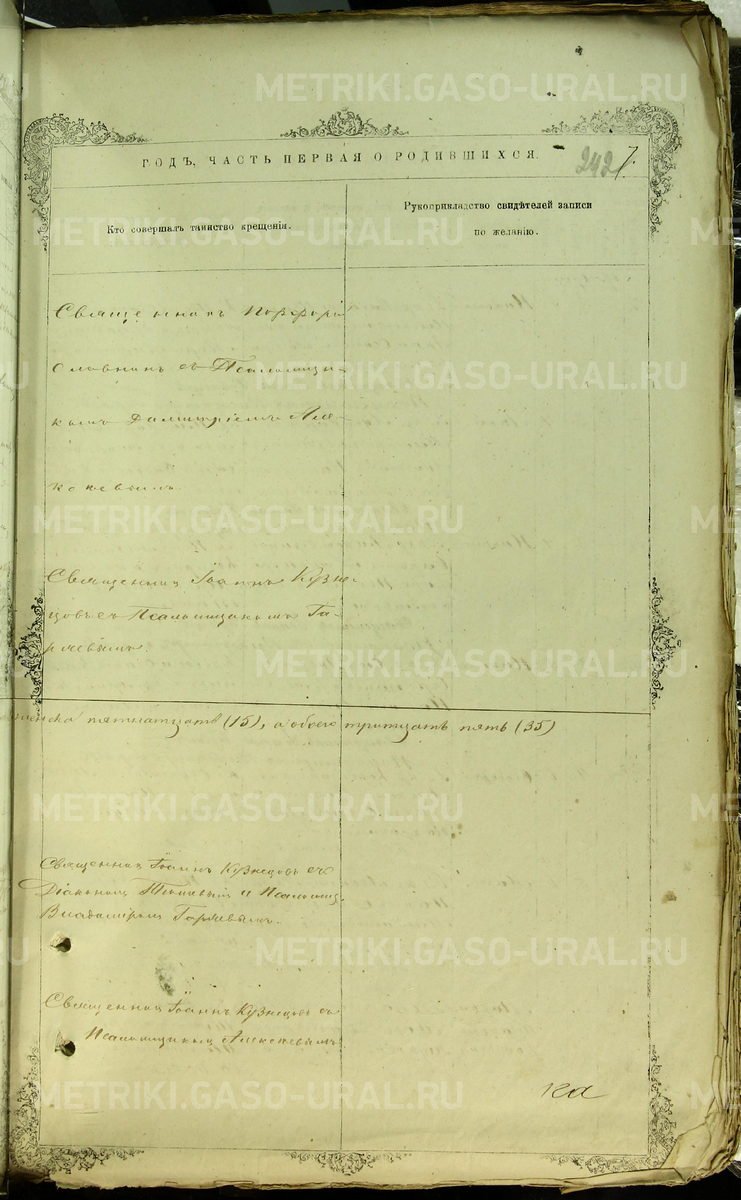 METRIKI.GASO-URAL.RU
ГОДЪ, ЧАСТЬ ПЕРВАЯ О РОДИВШИХСЯ.
242
Кто совершалъ таинство крещенія.
Рукоприкладство свидѣтелей записи
по желанію.
Священникъ Порфирій
Славнинъ съ Псаломщи-
комъ Димитріемъ Але-
ксѣевымъ
Священникъ Іоаннъ Кузне-
цовъ съ Псаломщикомъ Га-
ряевымъ.
женска пятнатцать (15), а обоего тритцать пять (35)
Священникъ Іоаннъ Кузнецовъ съ
Діакономъ и Псаломщ.
Владиміромъ Гаряевымъ.
Священникъ Іоаннъ Кузнецовъ съ
Псаломщикомъ Алексѣевымъ